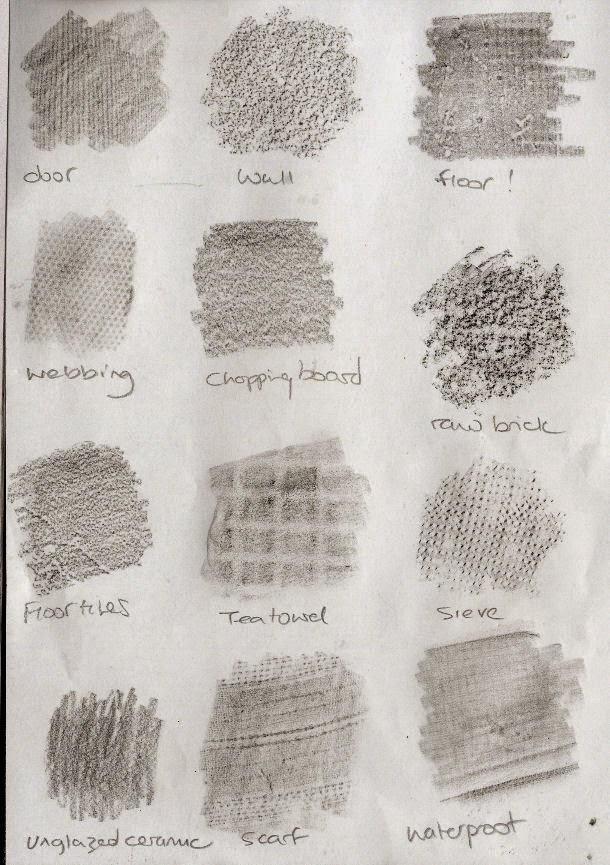 door
wall
floor!
webbing
chopping board
raw brick
Floor tiles
Tea towel
Sieve
unglazed ceramic
scarf
waterproof